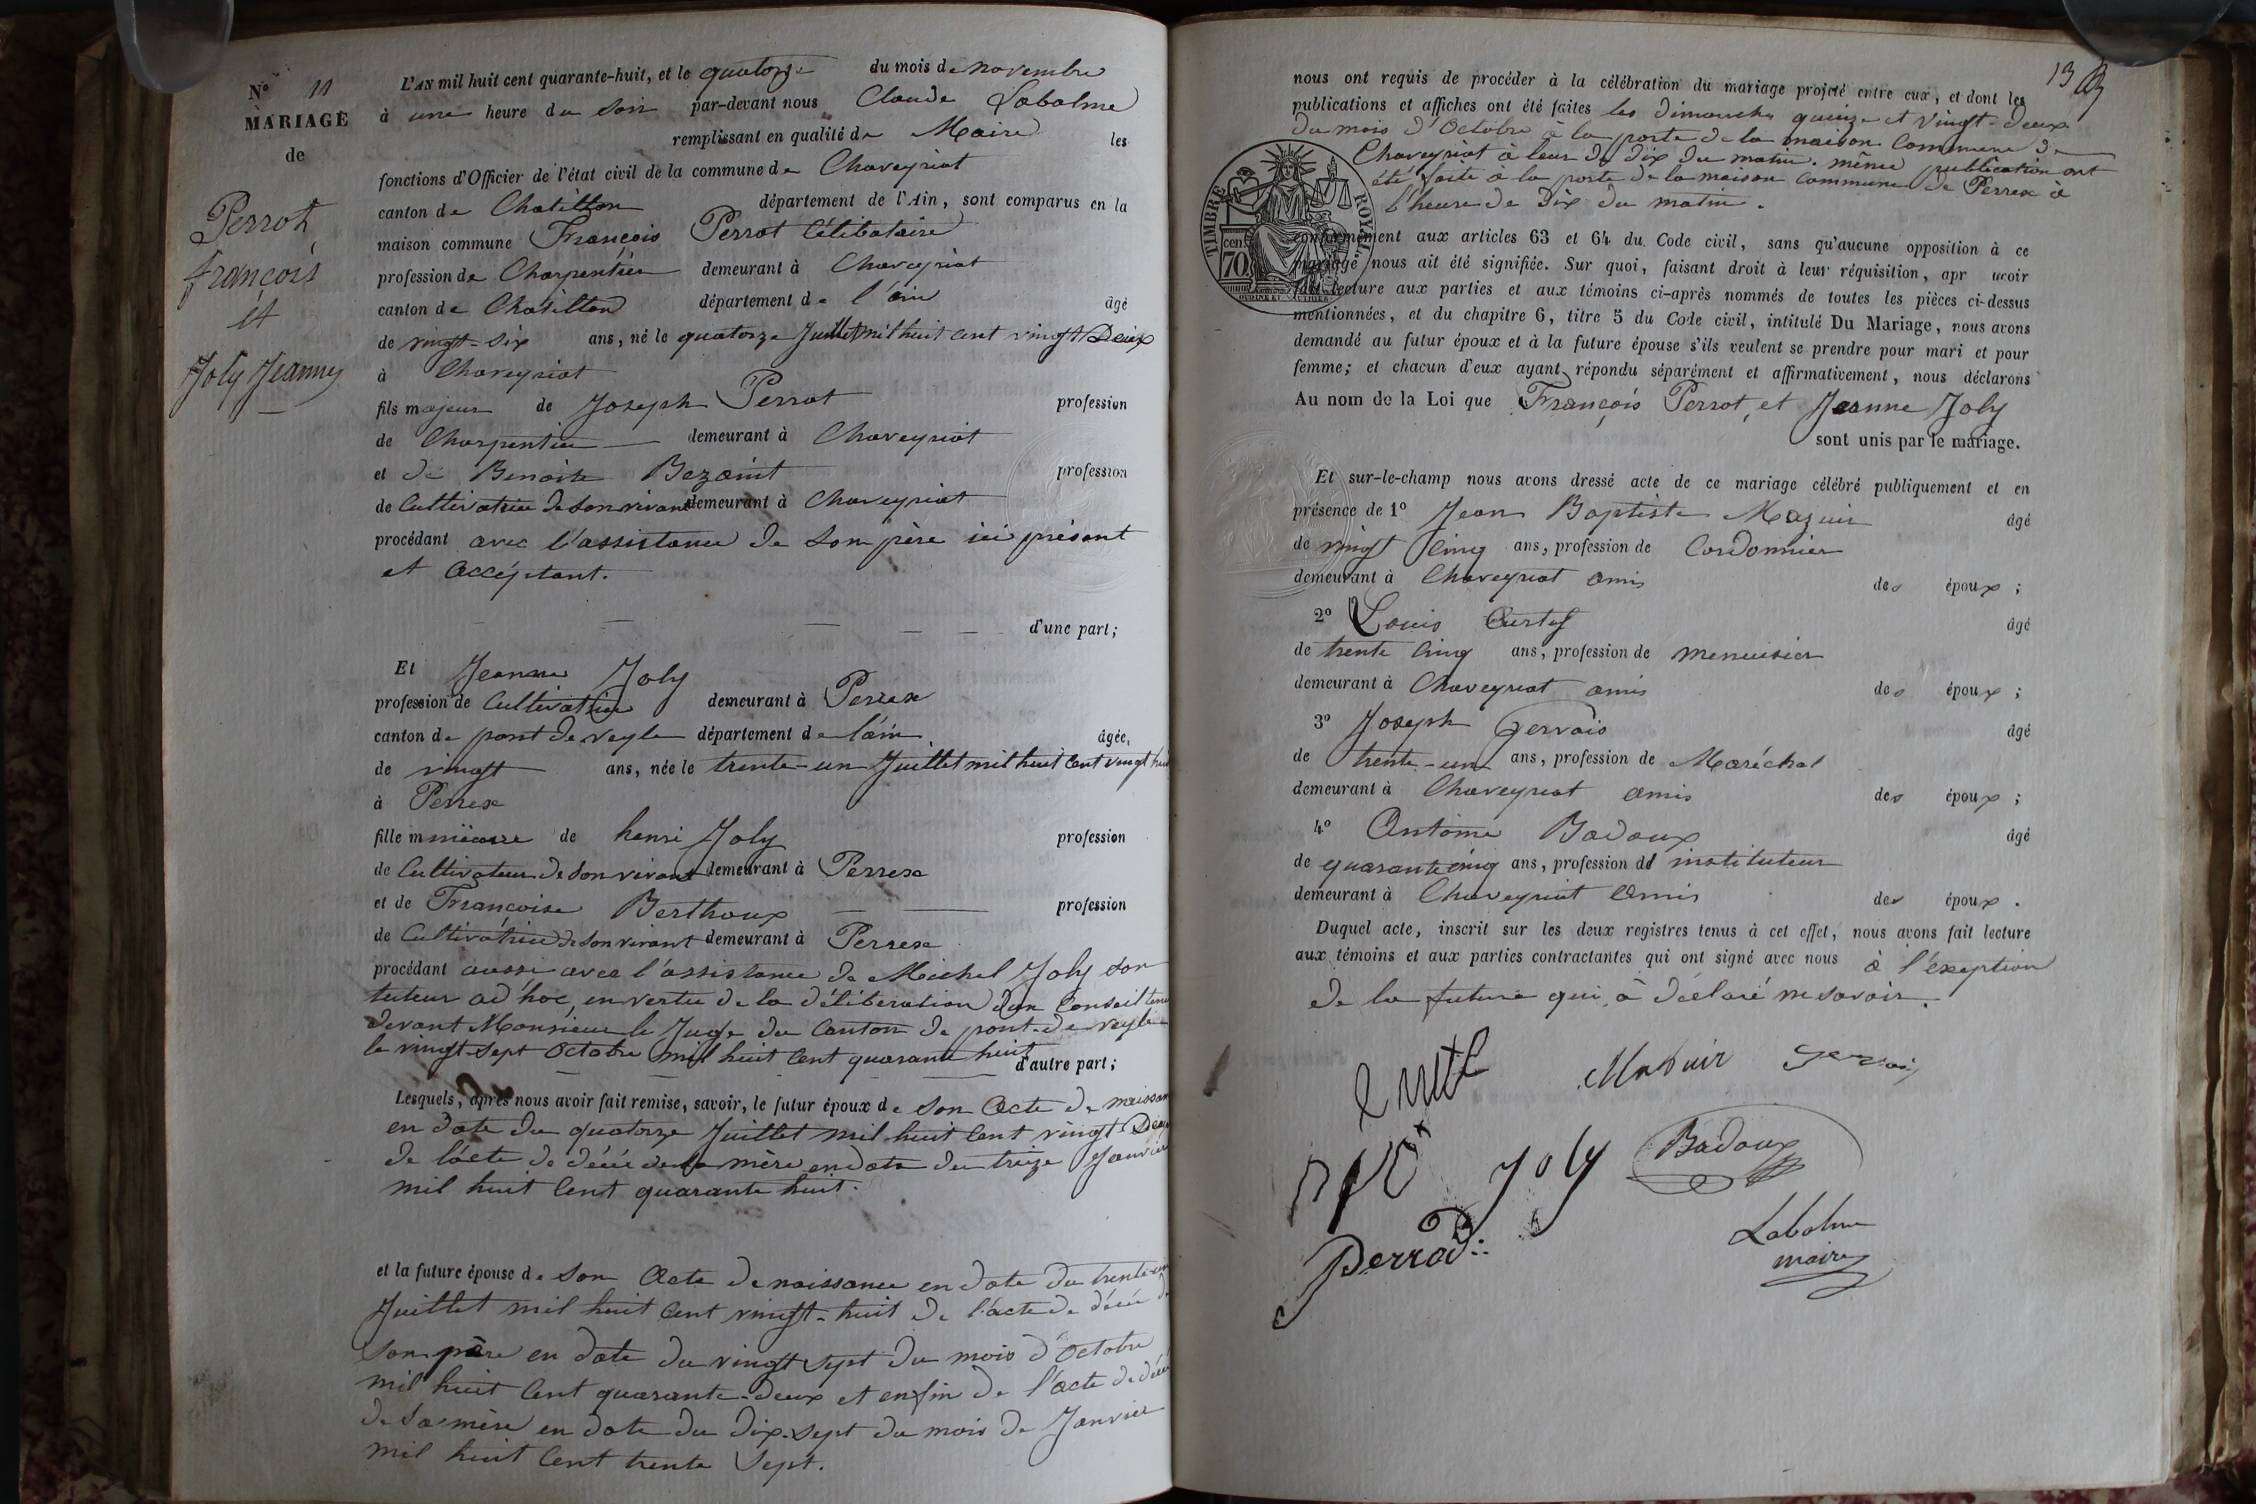 N° 11
MARIAGE
de
Perrot
françois
et
Joly Jeanne
L'AN mil huit cent quarante-huit, et le quatorze du mois de novembre
à une heure du soir par-devant nous Claude Labalme
remplissant en qualité de Maire les
fonctions d'Officier de l'état civil de la commune de Chaveyriat
canton de Chatillon département de l'Ain, sont comparus en la
maison commune François Perrot Célibataire
profession de Charpentier demeurant à Chaveyriat
canton de Châtillon département de l'ain âgé
de vingt-six ans, né le quatorze Juillet mil huit cent vingt Deux
à Chaveyriat
fils majeur de Joseph Perrot profession
de Charpentier demeurant à Chaveyriat
et de Benoite Bezaint profession
de Cultivatrice de son vivant demeurant à Chaveyriat
procédant avec l'assistance de son père ici présent
et Accéptant.
d'une part;
Et Jeanne Joly
profession de Cultivatrice demeurant à Perrex
canton de pont de veyle département de l'ain âgée,
de vingt ans, née le trente-un Juillet mil huit cent vingt huit
à Perrex
fille mineure de henri Joly profession
de Cultivateur de son vivant demeurant à Perrex
et de Françoise Berthoux profession
de Cultivatrice de son vivant demeurant à Perrex
procédant aussi avec l'assistance de Michel Joly son
tuteur ad'hoc, en vertu de la déliberation d'un Conseil tenu
devant Monsieur le Juge du Canton de pont-de-veyle
le vingt-sept Octobre mil huit cent quarante huit
d'autre part;
Lesquels, après nous avoir fait remise, savoir, le futur époux de son Acte de naissan
en date du quatorze Juillet mil huit cent vingt Deux
de l'acte de décé de sa mère en date du treize Janvier
mil huit cent quarante huit.
et la future épouse de son Acte de naissance en date du trente-un
Juillet mil huit cent vingt-huit de l'acte de décé de
son père en date du vingt sept du mois d'Octobre
mil huit cent quarante-deux et enfin de l'acte de décé
de sa mère en date du dix-sept du mois de Janvier
mil huit cent trente sept.
13
nous ont requis de procéder à la célébration du mariage projeté entre eux, et dont les
publications et affiches ont été faites les dimanches quinze et vingt-deux
du mois d'Octobre à la porte de la maison Commune de
Chaveyriat à leur de dix du matin. même publication ont
été faite à la porte de la maison Commune de Perrex à
l'heure de Dix du matin.
TIMBRE ROYAL
cen 70
conformément aux articles 63 et 64 du Code civil, sans qu'aucune opposition à ce
mariage nous ait été signifiée. Sur quoi, faisant droit à leur réquisition, apr avoir
fait lecture aux parties et aux témoins ci-après nommés de toutes les pièces ci-dessus
mentionnées, et du chapitre 6, titre 5 du Code civil, intitulé Du Mariage, nous avons
demandé au futur époux et à la future épouse s'ils veulent se prendre pour mari et pour
femme; et chacun d'eux ayant répondu séparément et affirmativement, nous déclarons
Au nom de la Loi que François Perrot, et Jeanne Joly
sont unis par le mariage.
Et sur-le-champ nous avons dressé acte de ce mariage célébré publiquement et en
présence de 1° Jean Baptiste Mazuir âgé
de vingt cinq ans, profession de Cordonnier
demeurant à Chaveyriat amis des époux;
2° Louis Curtil âgé
de trente cinq ans, profession de menuisier
demeurant à Chaveyriat amis des époux;
3° Joseph Gervais âgé
de trente-un ans, profession de Maréchal
demeurant à Chaveyriat amis des époux;
4° Antoine Badoux âgé
de quarante cinq ans, profession d' instituteur
demeurant à Chaveyriat Amis des époux.
Duquel acte, inscrit sur les deux registres tenus à cet effet, nous avons fait lecture
aux témoins et aux parties contractantes qui ont signé avec nous à l'exeption
de la future qui à déclaré ne savoir.
Mazuir Gervais
Joly Badoux
Perrod
Labalme
maire